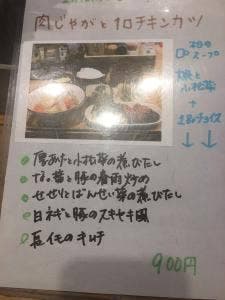 肉じゃがと一口チキンカツ
本日の
スープ
小松菜
+
1品チョイス
↓↓
厚あげと小松菜の煮びたし
なす
豚の春雨炒め
せせりとばんせい菜の煮びたし
白ネギと豚のスキヤキ風
長イモのキムチ
900円